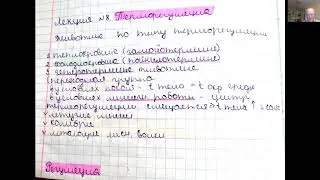 Лекция №8. Терморегуляция
Животные по типу терморегуляции
1 теплокровные (гомойотермные)
2 холоднокровные (пойкилотермные)
3 гетеротермные животные
переходная группа
в условиях покоя - t тела = t окр среды
в условиях мышеч работы - центр
терморегуляции смещается → t тела ↑
летучие мыши
колибри